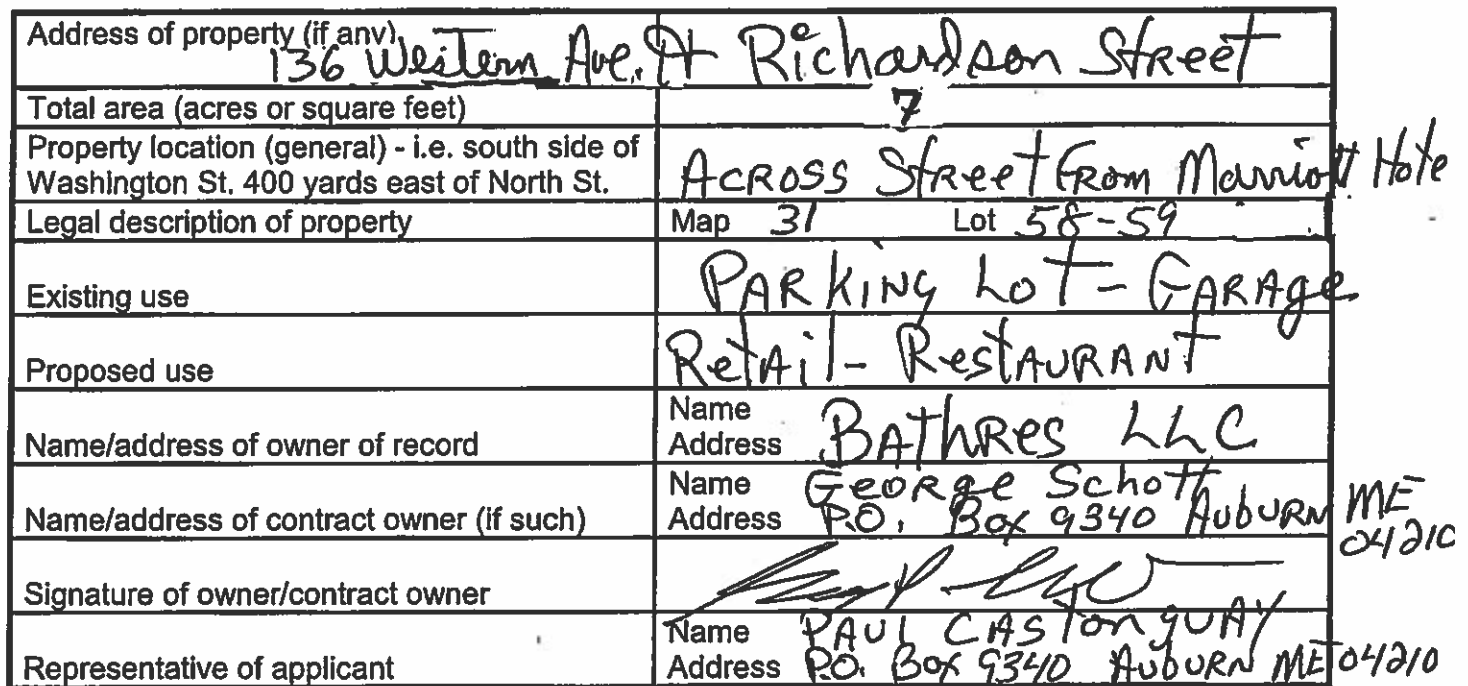 Address of property (if any)
136 Western Ave. + Richardson Street
Total area (acres or square feet) 7
Property location (general) - i.e. south side of
Washington St. 400 yards east of North St.
Across Street From Marriott Hote
Legal description of property Map 31 Lot 58-59
Existing use PARKING LOT - GARAge
Proposed use RetAil - RestAURANT
Name/address of owner of record Name
Address BAThRes LLC
Name/address of contract owner (if such) Name George Schott
Address P.O. Box 9340 AUbURN ME
04210
Signature of owner/contract owner
Representative of applicant Name PAUL CASTonguAY
Address P.O. Box 9340 AUbURN ME 04210